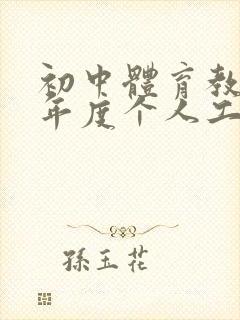 初中體育教
年度个人工
孫玉花